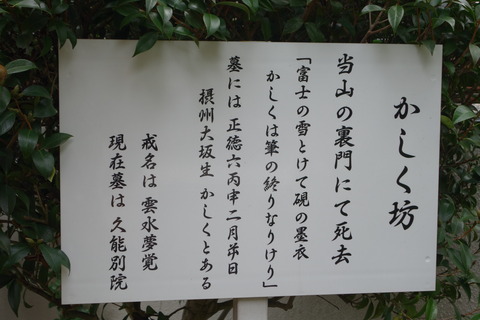 かしく坊
当山の裏門にて死去
「富士の雪とけて硯の墨衣
かしくは筆の終りなりけり」
墓には 正徳六丙 二月 日
摂州大坂生 かしくとある
戒名は 雲水夢覚
現在墓は 久能別院